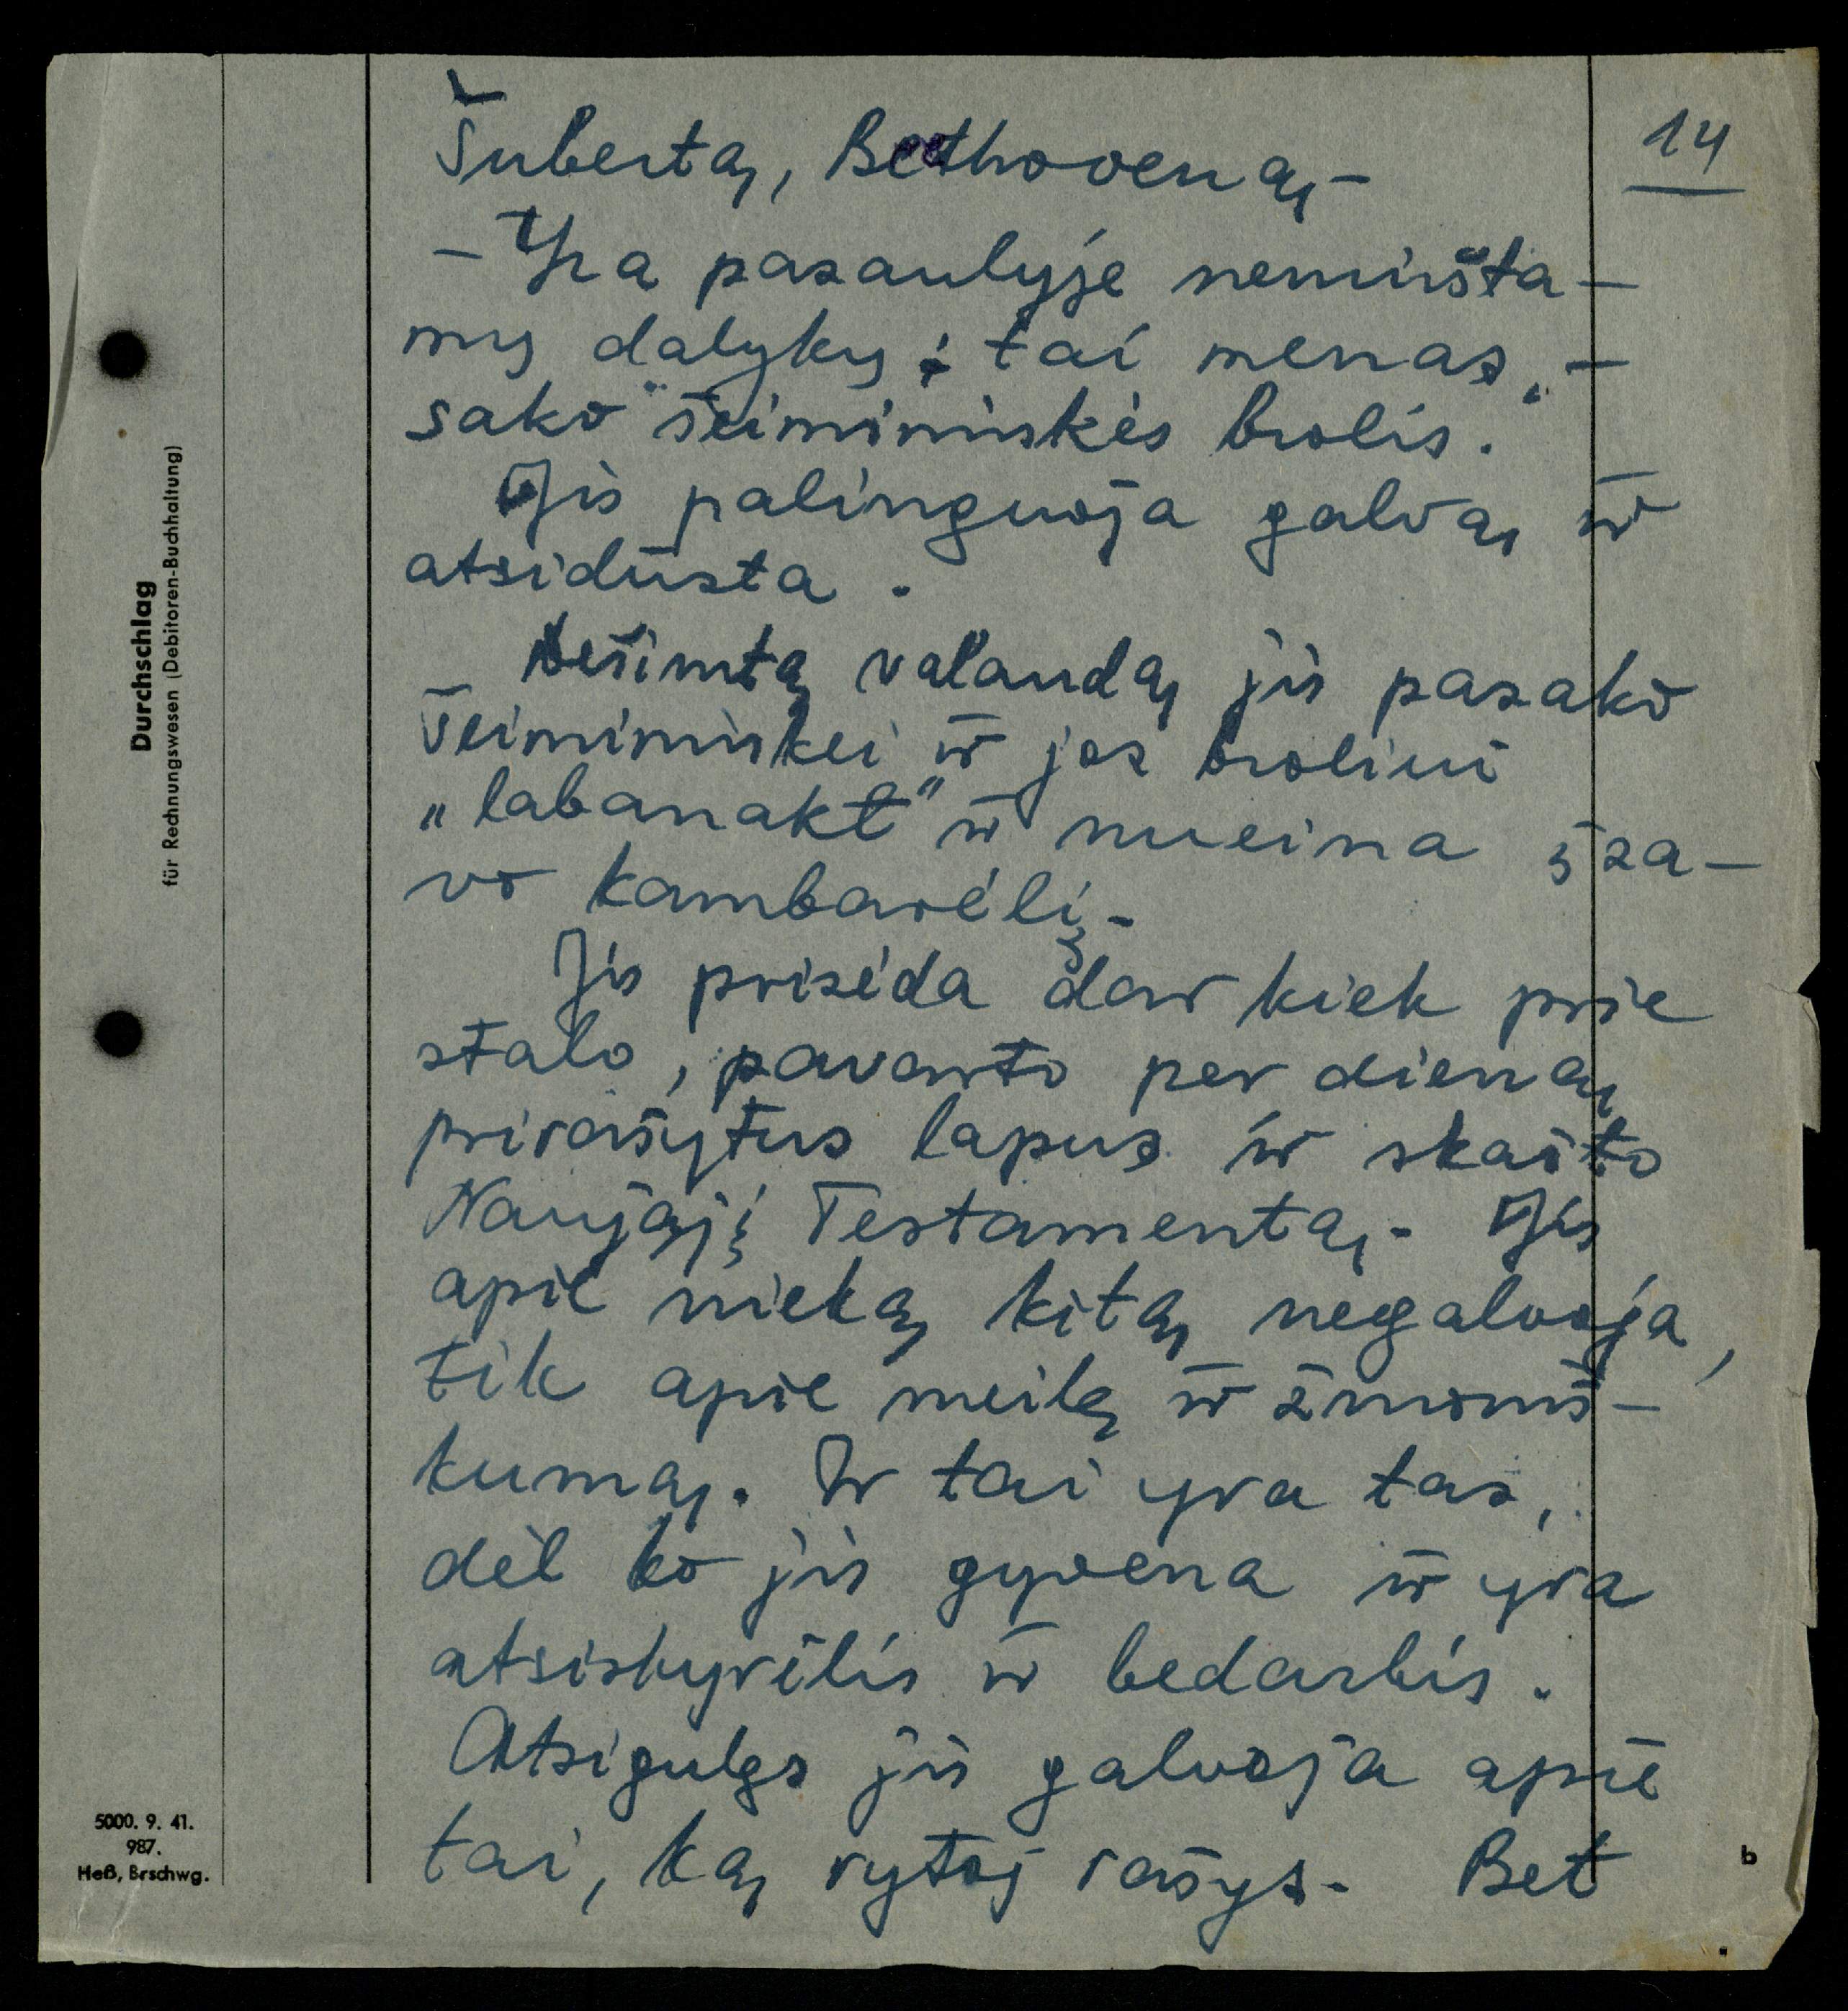 14
Šubertą, Beethoveną.
– Yra pasaulyje nemiršta-
mų dalykų: tai menas, –
sako šeimininkės brolis.
Jis palinguoja galvą ir
atsidūsta.
Dešimtą valandą jis pasako
šeimininkei ir jos broliui
„labanakt" ir nueina į sa-
vo kambarėlį.
Jis prisėda dar kiek prie
stalo, pavarto per dieną
prirašytus lapus ir skaito
Naująjį Testamentą. Jis
apie nieką kitą negalvoja,
tik apie meilę ir žmoniš-
kumą. Ir tai yra tas,
dėl ko jis gyvena ir yra
atsiskyrėlis ir bedarbis.
Atsigulęs jis galvoja apie
tai, ką rytoj rašys. Bet
Durchschlag
für Rechnungswesen (Debitoren-Buchhaltung)
5000. 9. 41.
987.
Heß, Brschwg.
b